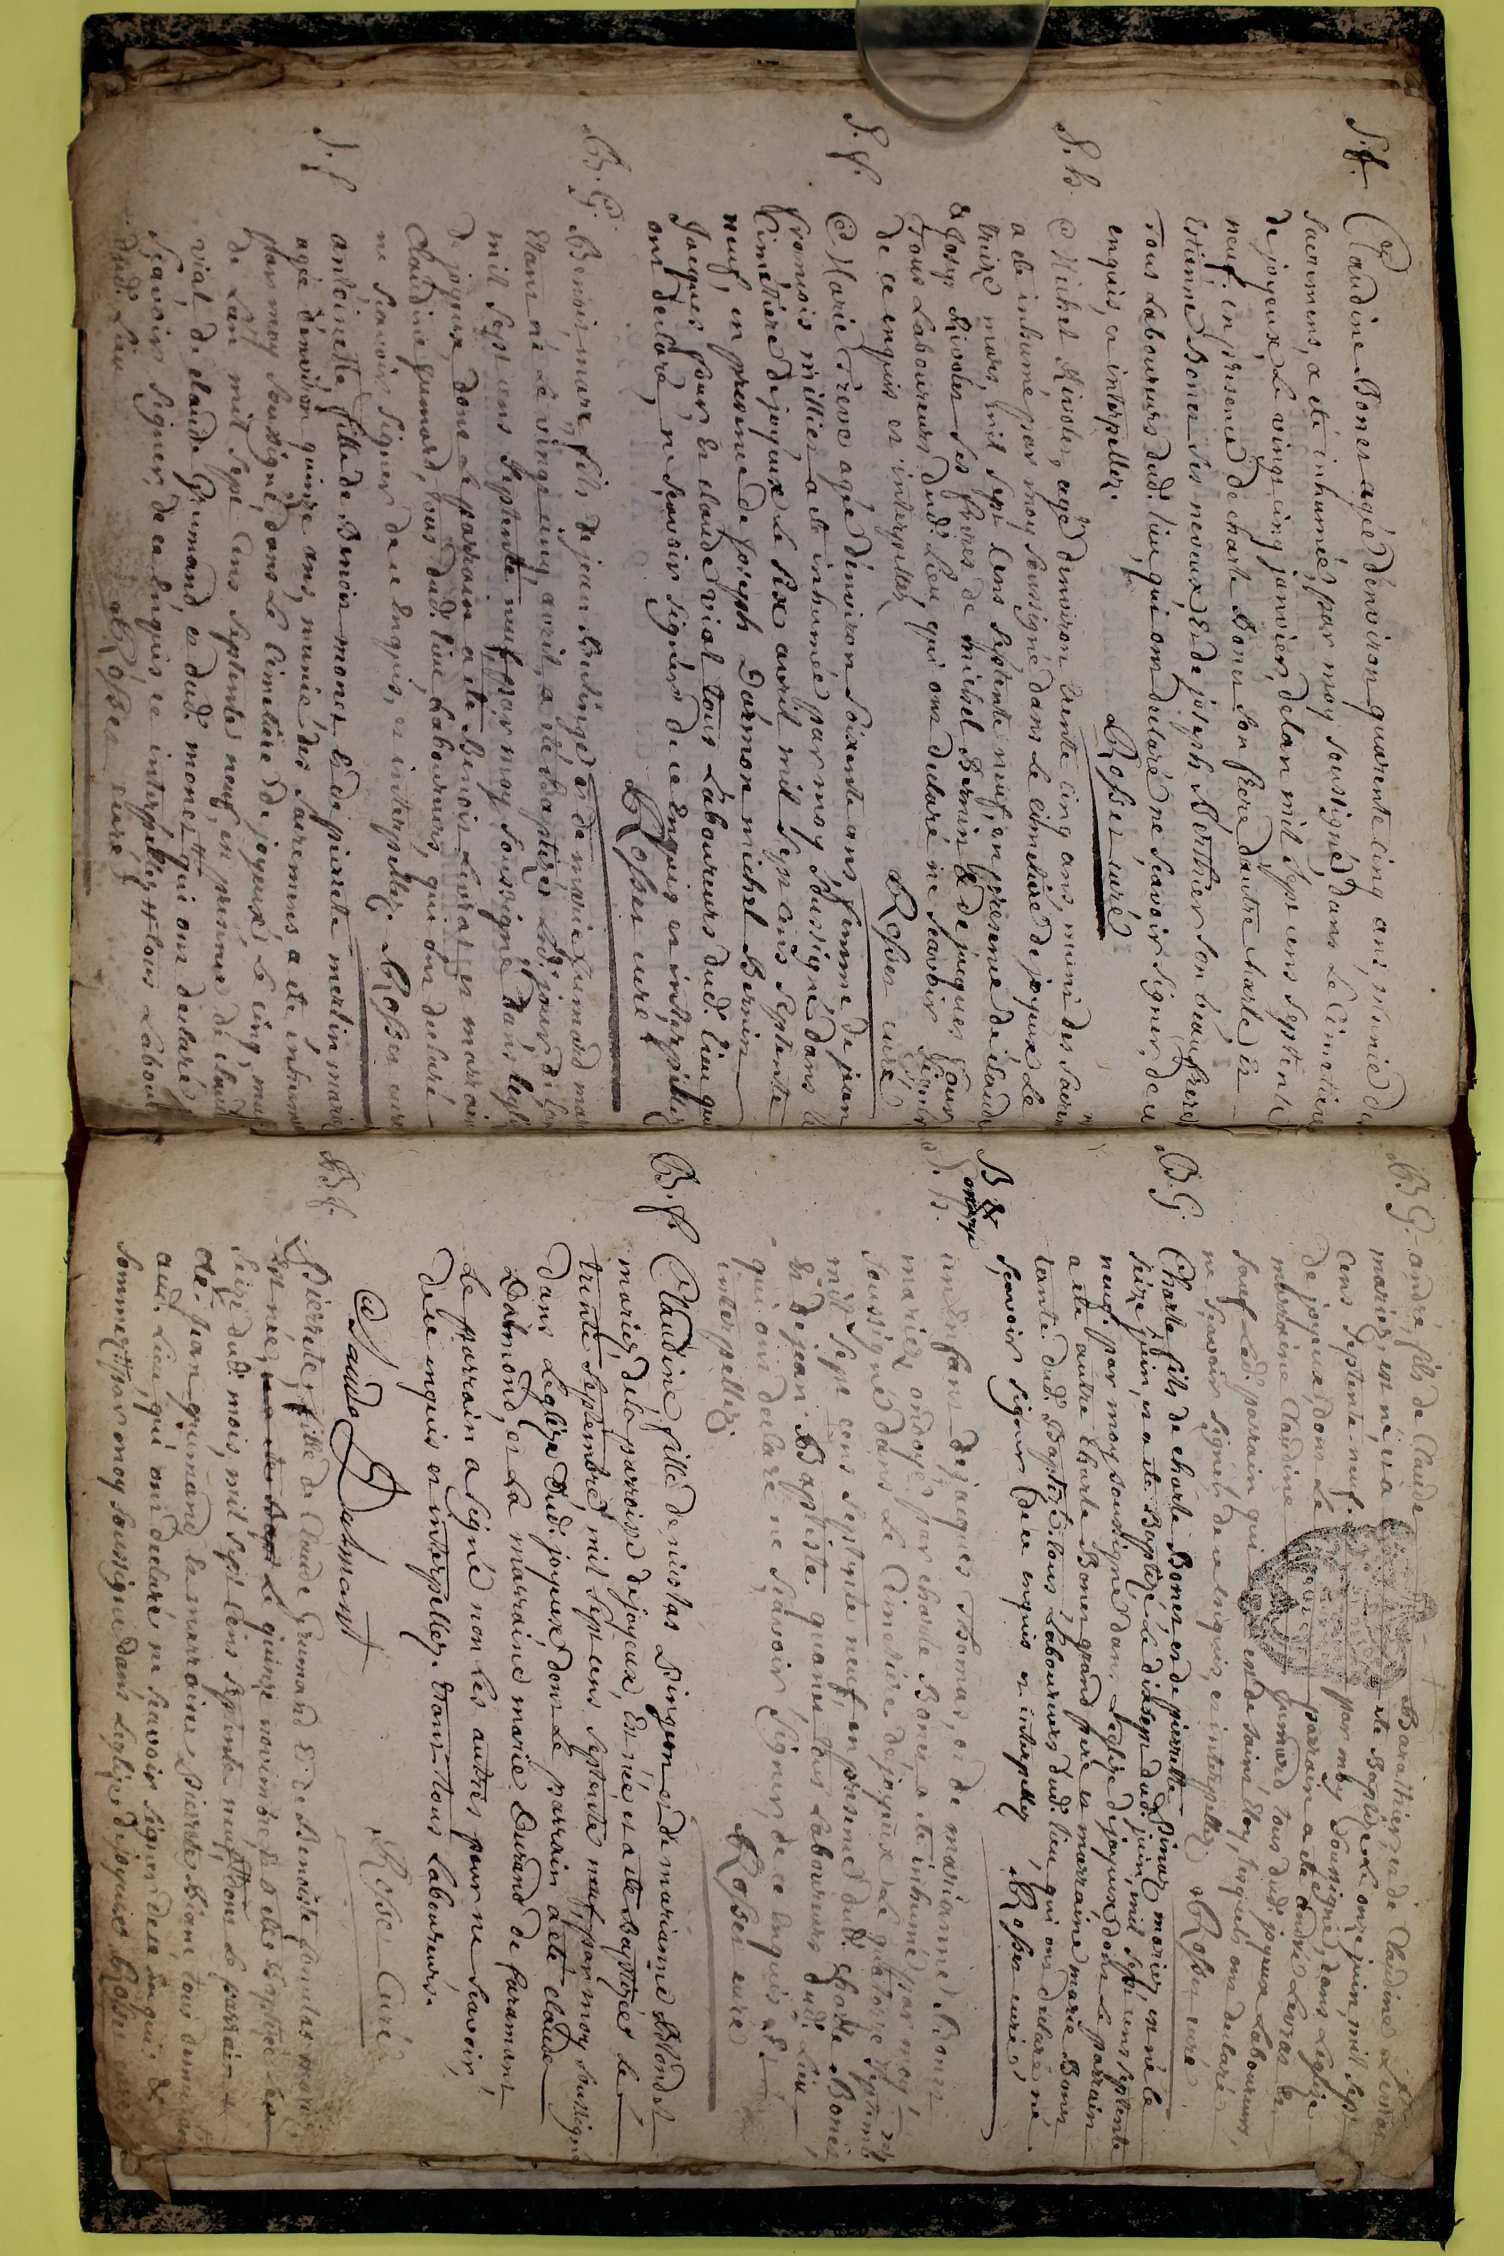 S.f. Claudine Boner agée d'environ quarente cinq ans, munie des
sacremens, a eté inhumée par moy soussigné dans le Cimetiere
de joyeux, le vingt cinq janvier, de lan mil sept cens septente
neuf. en presence de charle Boner son frere d'autre charle Et
Estienne Boner ses neveux, Et de joseph Berthier son beau frere
Tous Laboureurs dud. lieu, qui ont declaré ne scavoir signer, de ce
enquis, et interpellez.
Rosser curé
S. h. Michel Rivoler, agé denviron trente cinq ans, muni des sacrem
a ete inhumé par moy soussigné dans le cimetiere de joyeux Le
treize mars, mil sept cens septente neuf, en presence de claude
& Josep Rivoler ses freres de michel Bernin & de jacques Four
Tous Laboureurs dud. Lieu qui ont declaré ne scavoir signer
de ce enquis et interpellez,
Rosser curé
S. f. Marie Treve agée d'environ soixente ans, femme de jean
francois millier a ete inhumée par moy soussigné dans le
cimetiere de joyeux le six avril mil sept cens septente
neuf, en presence de joseph Darmon michel Bernin
Jacques Four Et claude vial tous Laboureurs dud. lieu qui
ont declaré, ne scavoir signer de ce Enquis et interpellez
Rosser curé
B. G. Benoit, marc, fils de jean Bulinge et de marie Gumand mar
Etant né le vingt cinq avril, a eté Baptizé led. jour de lan
mil sept cens septente neuf par moy soussigné dans legli
de joyeux, dont le parrain a ete Benoit Livrat et marrain
Claudine gumard, tous dud. lieu Laboureurs, qui ont declaré
ne scavoir signer de ce Enquis, et interpellez. Rosser curé
S. f. antoinette fille de Benoit moner & de pierrete merlin marié
agée denviron quinze ans, munie des sacremens a ete inhum
par moy soussigné, dans le Cimetiere de joyeux Le cinq may
de Lan mil sept cens septente neuf, en presence de claude
vial de claude Grumand et dud. moner # qui ont declaré
scavoir signer, de ce Enquis et interpellez # tous Labour
dud. Lieu
Rosser curé
B G. andré, fils de Claude Barathier, et de Claudine Livrat
mariez, est né, et a ete Baptizé le onze juin, mil sept
cens septente neuf par moy soussigné, dans Leglise
de joyeux, dont le parrain a ete andré Livrat Et
marraine Claudine gumard tous dud. joyeux Laboureurs,
sauf led. parrain qui est de saint Eloy, lesquels ont declaré
ne scavoir signer, de ce enquis, et interpellez Rosser curé
B. G. Charle fils de charle Boner, et de pierrette Dinar mariez, est né le
seize juin, et a ete Baptizé le dixsept dud. juin, mil sept cens septente
neuf. par moy soussigné dans Leglise de joyeux dont le parrain
a ete autre charle Boner grand pere et marraine marie Boner
tante dud. Baptizé tous Laboureurs dud. lieu qui ont declaré ne
scavoir signer de ce enquis et interpellez, Rosser curé,
B &
S. h. un Enfant de jacques Thomas, et de marianne Boner
mariez, ondoyé par charle Boner, a ete inhumé par moy
soussigné dans Le Cimetiere de joyeux Le quatorze septemb
mil sept cens septente neuf, en presence dud. charle Boner
Et de jean Baptiste quoner tous Laboureurs dud. Lieu,
qui ont declaré ne scavoir signer, de ce Enquis et
interpellez.
Rosser curé
B. f. Claudine fille de nicolas Dingeon et de marianne Blondet
mariez, de la parroise de joyeux, Est née et a ete baptizée le
trente septembre, mil sept cens septente neuf, par moy soussigné
dans Leglise Dud. joyeux dont le parrain a eté claude
Dalmond, et la marraine marie Durand de faramant
Le parrain a signé non les autres pour ne scavoir,
de ce enquis et interpellez. tous Laboureurs.
Claude Dalmont
Rosser Curé
B f. Pierrete, fille de Claude Grumand Et de Benoiste mariez
Est née, le quinze novembre Et a ete Baptizée Le
seize dud. mois, mil sept cens septente neuf, # dont le parrain a
eté, Jean grumand la marraine Pierrete tous demeurant
aud. Lieu, qui ont declaré ne scavoir signer de ce enquis &
sommez # par moy soussigné dans Leglise de joyeux Rosser curé